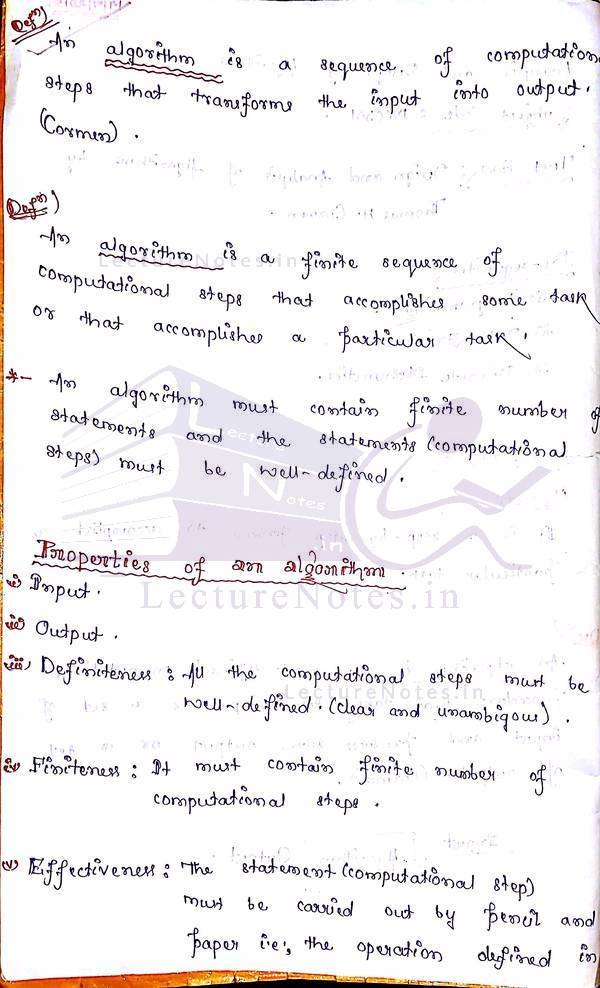 Defn)
An algorithm is a sequence of computation
steps that transforms the input into output.
(Cormen).
Defn)
An algorithm is a finite sequence of
LectureNotes.in
computational steps that accomplishes some task
or that accomplishes a particular task.
*- An algorithm must contain finite number of
statements and the statements (computational
steps) must be well-defined.
Lecture
Notes
.in
Properties of an algorithm.
LectureNotes.in
i) Input.
ii) Output.
iii) Definiteness: All the computational steps must be
LectureNotes.in
well-defined. (clear and unambigous).
iv) Finiteness: It must contain finite number of
computational steps.
v) Effectiveness: The statement (computational step)
must be carried out by pencil and
paper i.e., the operation defined in